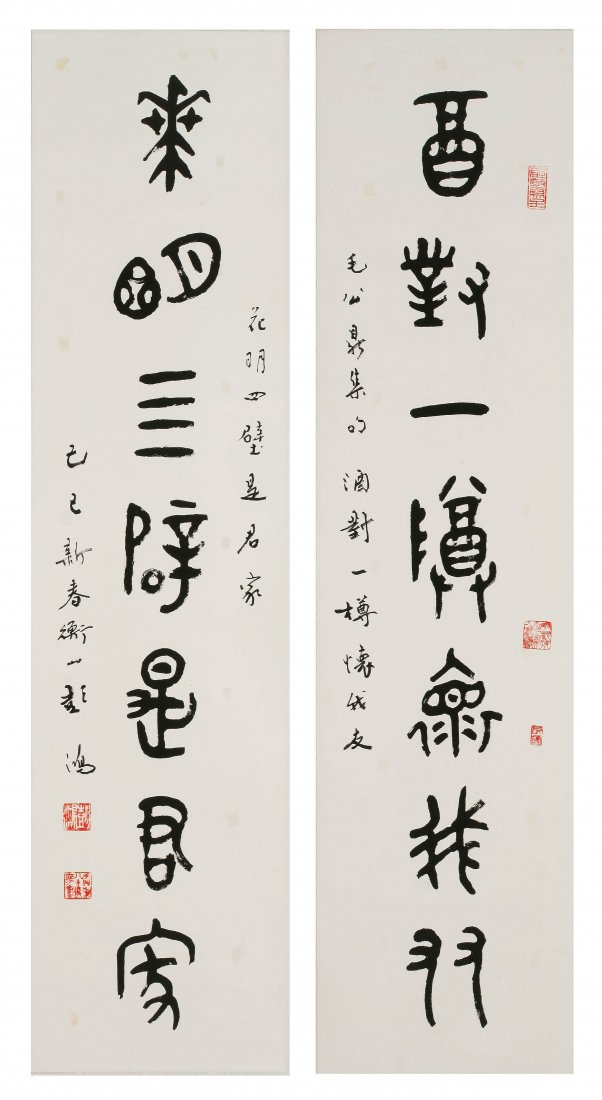 酒對一樽懷我友
毛公鼎集句 酒對一樽懷我友
花明四壁是君家
花明四壁是君家
己巳新春衡山彭鴻